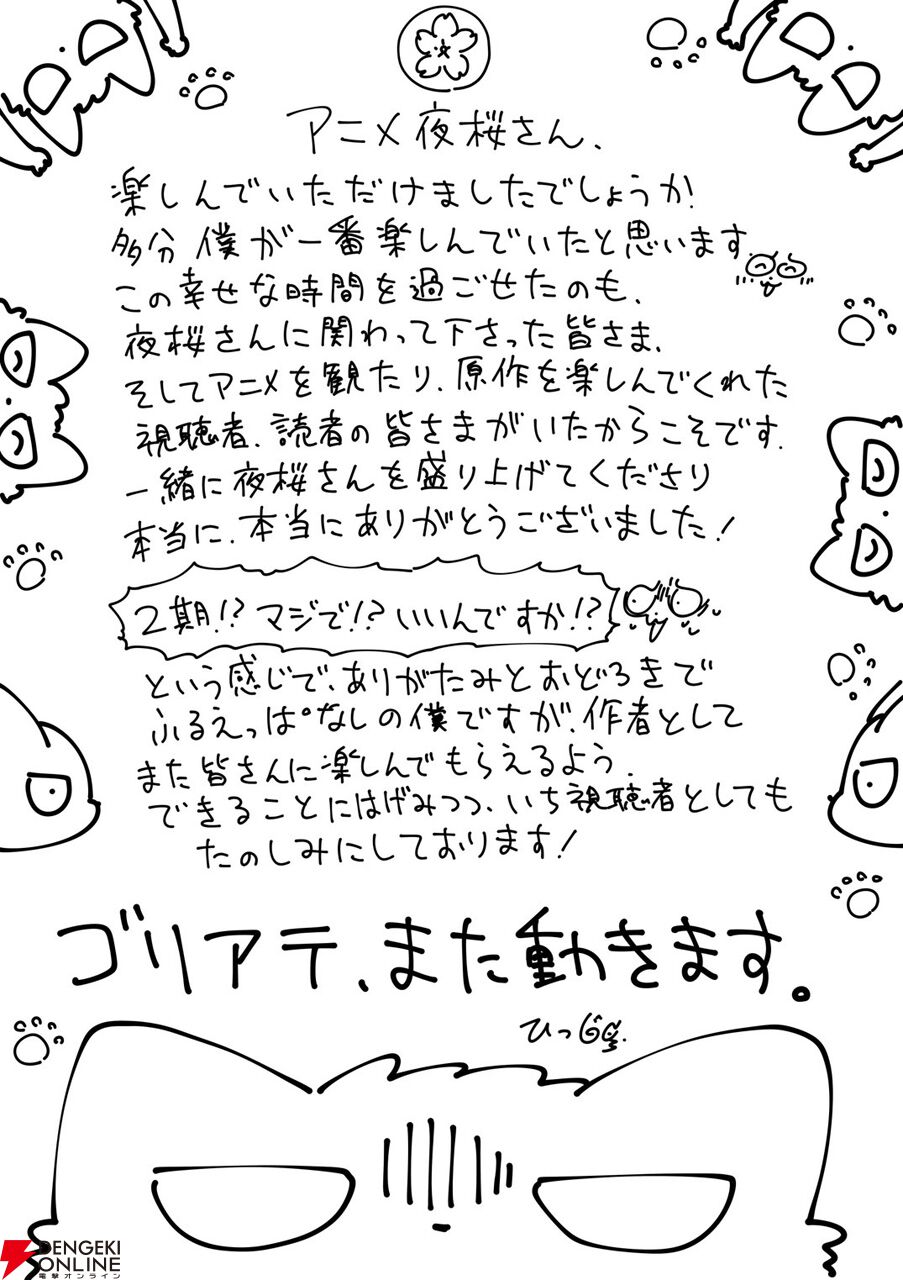 アニメ夜桜さん、
楽しんでいただけましたでしょうか?
多分 僕が一番楽しんでいたと思います。
この幸せな時間を過ごせたのも、
夜桜さんに関わって下さった皆さま、
そしてアニメを観たり、原作を楽しんでくれた
視聴者、読者の皆さまがいたからこそです。
一緒に夜桜さんを盛り上げてくださり
本当に、本当にありがとうございました!
2期!? マジで!? いいんですか!?
という感じで、ありがたみとおどろきで
ふるえっぱなしの僕ですが、作者として
また皆さんに楽しんでもらえるよう、
できることにはげみつつ、いち視聴者としても
たのしみにしております!
ゴリアテ、また動きます。
DENGEKI
ONLINE
電撃オンライン